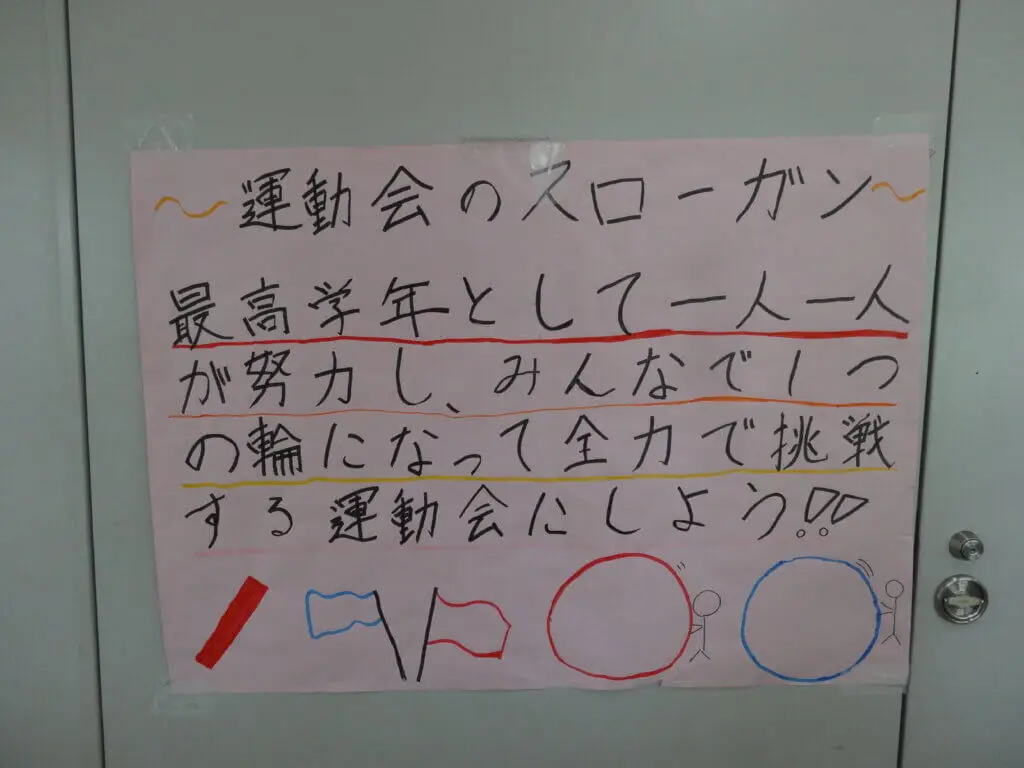 ～運動会のスローガン～
最高学年として一人一人
が努力し、みんなで1つ
の輪になって全力で挑戦
する運動会にしよう!!